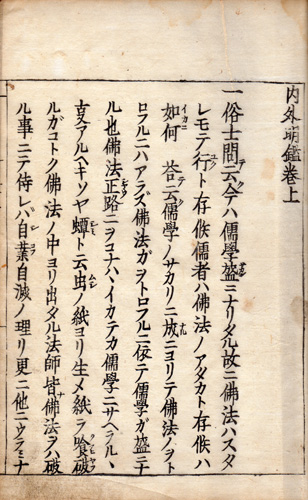 内外明鑑巻上
一俗士問テ云今ハ儒學盛ニナリタル故ニ佛法ハスタ
レモテ行ト存候儒者ハ佛法ノアダカト存候ハ
如何 答云儒學ノサカリニ成ニヨリテ佛法ノヲト
ロフルニハアラズ佛法ガヲトロフルニ依テ儒學ガ盛ニナ
ル也佛法正路ニヲコナハヽイカテカ儒學ニサヘラルヽ
夏アルヘキソヤ蟫ト云虫ノ紙ヨリ生メ紙ヲ喰破
ルガコトク佛法ノ中ヨリ出タル法師皆佛法ヲハ破
ル事ニテ侍レバ自業自滅ノ理リ更ニ他ニウラミナ